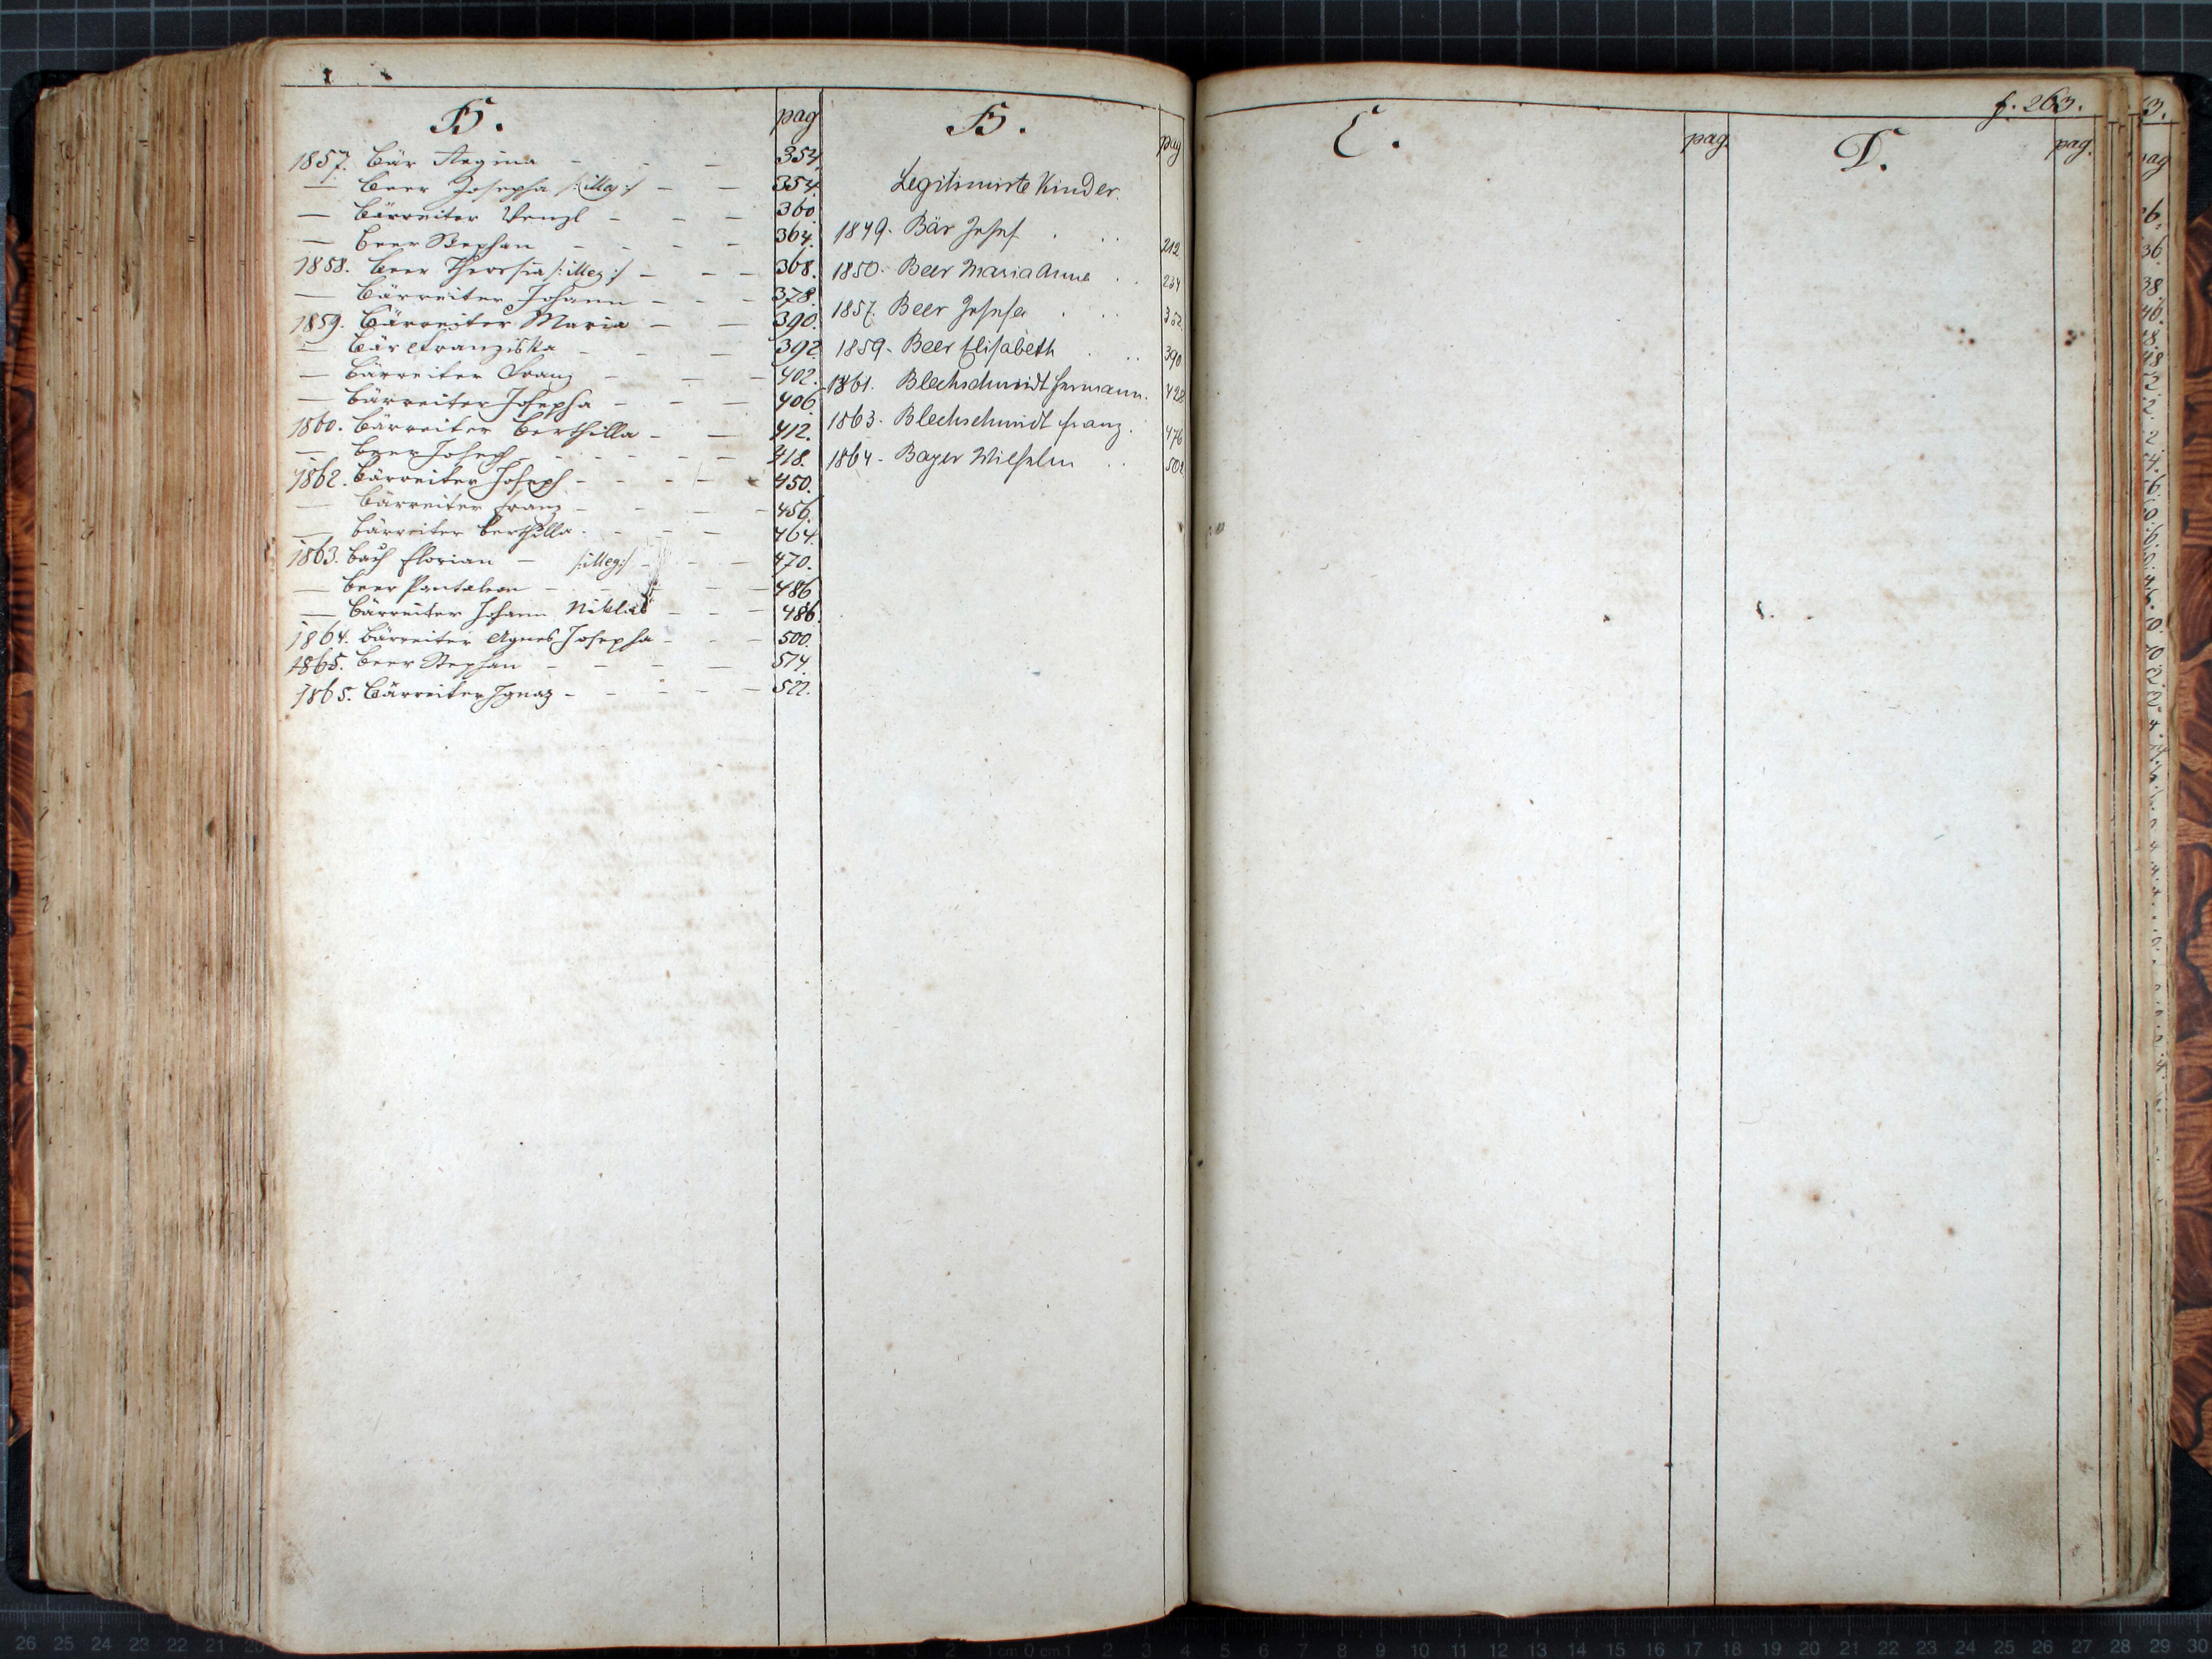 B.
pag
1857. Bär Regina - - - 354
— Beer Josepha /: illeg :/ - - 354
— Bärreiter Wenzl - - - 360
— Beer Stephan - - - - 364.
1858. Beer Theresia /: illeg :/ - - - 368.
— Bärreiter Johann - - - 378.
1859. Bärreiter Maria - - 390.
— Bär Franziska - - - 392
— Bärreiter Franz - - - 402.
— Bärreiter Josepha - - - 406
1860. Bärreiter Berthilla - - 412.
— Beer Joseph - - - - - 418.
1862. Bärreiter Joseph - - - - 450.
— Bärreiter Franz - - - - 456.
— Bärreiter Berthilla - - - 464.
1863. Bach Florian - /: illeg :/ - - - 470.
— Beer Pantaleon - - - - 486
— Bärreiter Johann Niklas - - - 486.
1864. Bärreiter Agnes Josepha - - - 500.
1865. Beer Stephan - - - - 514.
1865. Bärreiter Ignaz - - - - - 522.
B.
pag
Legitimirte Kinder.
1849. Bär Josef . . . 212.
1850. Beer Maria Anna . . 234
1857. Beer Josefa . . . 352.
1859. Beer Elisabeth . . . 390
1861. Blechschmidt Hermann. 428
1863. Blechschmidt Franz. 476
1864. Bayer Wilhelm . . 502
f. 263.
C.
pag.
D.
pag.